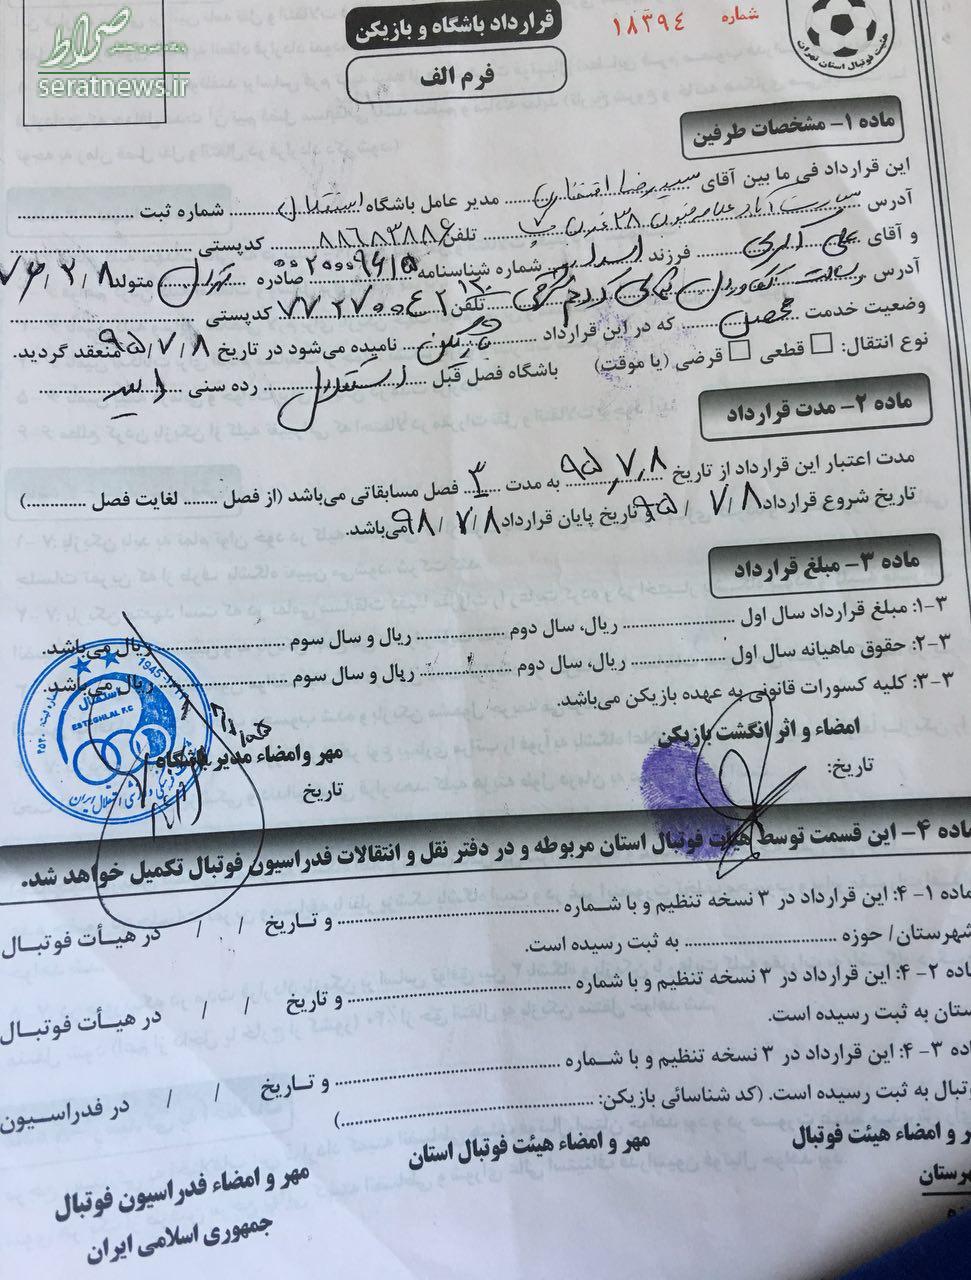 صراط
seratnews.ir
قرارداد باشگاه و بازیکن
فرم الف
شماره ۱۸۳۹۴
هیئت فوتبال استان تهران
ماده ۱- مشخصات طرفین
این قرارداد فی ما بین آقای سیدرضا افتخاری مدیر عامل باشگاه استقلال شماره ثبت ....................
آدرس سعادت آباد علامه جنوبی ۳۸ غربی پ ۷ تلفن ۸۸۶۸۳۸۸۶ کدپستی ....................
و آقای علی کریمی فرزند شماره شناسنامه ۰۰۲۰۰۰۹۶۱۵ صادره تهران متولد ۷۳/۲/۸
آدرس رسالت تلفن ۷۷۲۷۰۰۴۲ کدپستی ....................
وضعیت خدمت محصل که در این قرارداد بازیکن نامیده می‌شود در تاریخ ۹۵/۷/۸ منعقد گردید.
نوع انتقال: □ قطعی □ قرضی (یا موقت) باشگاه فصل قبل استقلال رده سنی امید
ماده ۲- مدت قرارداد
مدت اعتبار این قرارداد از تاریخ ۹۵/۷/۸ به مدت ۳ فصل مسابقاتی می‌باشد (از فصل ....... لغایت فصل .............)
تاریخ شروع قرارداد ۹۵/۷/۸ و تاریخ پایان قرارداد ۹۸/۷/۸ می‌باشد.
ماده ۳- مبلغ قرارداد
۳-۱: مبلغ قرارداد سال اول .................... ریال، سال دوم .................... ریال و سال سوم .................... ریال می‌باشد.
۳-۲: حقوق ماهیانه سال اول .................... ریال، سال دوم .................... ریال و سال سوم .................... ریال می‌باشد.
۳-۳: کلیه کسورات قانونی به عهده بازیکن می‌باشد.
امضاء و اثر انگشت بازیکن
تاریخ:
مهر و امضاء مدیر باشگاه
تاریخ
1945
استقلال
ESTEGHLAL F.C
ماده ۴- این قسمت توسط هیأت فوتبال استان مربوطه و در دفتر نقل و انتقالات فدراسیون فوتبال تکمیل خواهد شد.
ماده ۱-۴: این قرارداد در ۳ نسخه تنظیم و با شماره .................... و تاریخ / / در هیأت فوتبال
شهرستان/ حوزه .................... به ثبت رسیده است.
ماده ۲-۴: این قرارداد در ۳ نسخه تنظیم و با شماره .................... و تاریخ / / در هیأت فوتبال
ستان به ثبت رسیده است.
ده ۳-۴: این قرارداد در ۳ نسخه تنظیم و با شماره .................... و تاریخ / / در فدراسیون
وتبال به ثبت رسیده است. (کد شناسائی بازیکن: ....................)
ر و امضاء هیئت فوتبال
هرستان
مهر و امضاء هیئت فوتبال استان
مهر و امضاء فدراسیون فوتبال
جمهوری اسلامی ایران